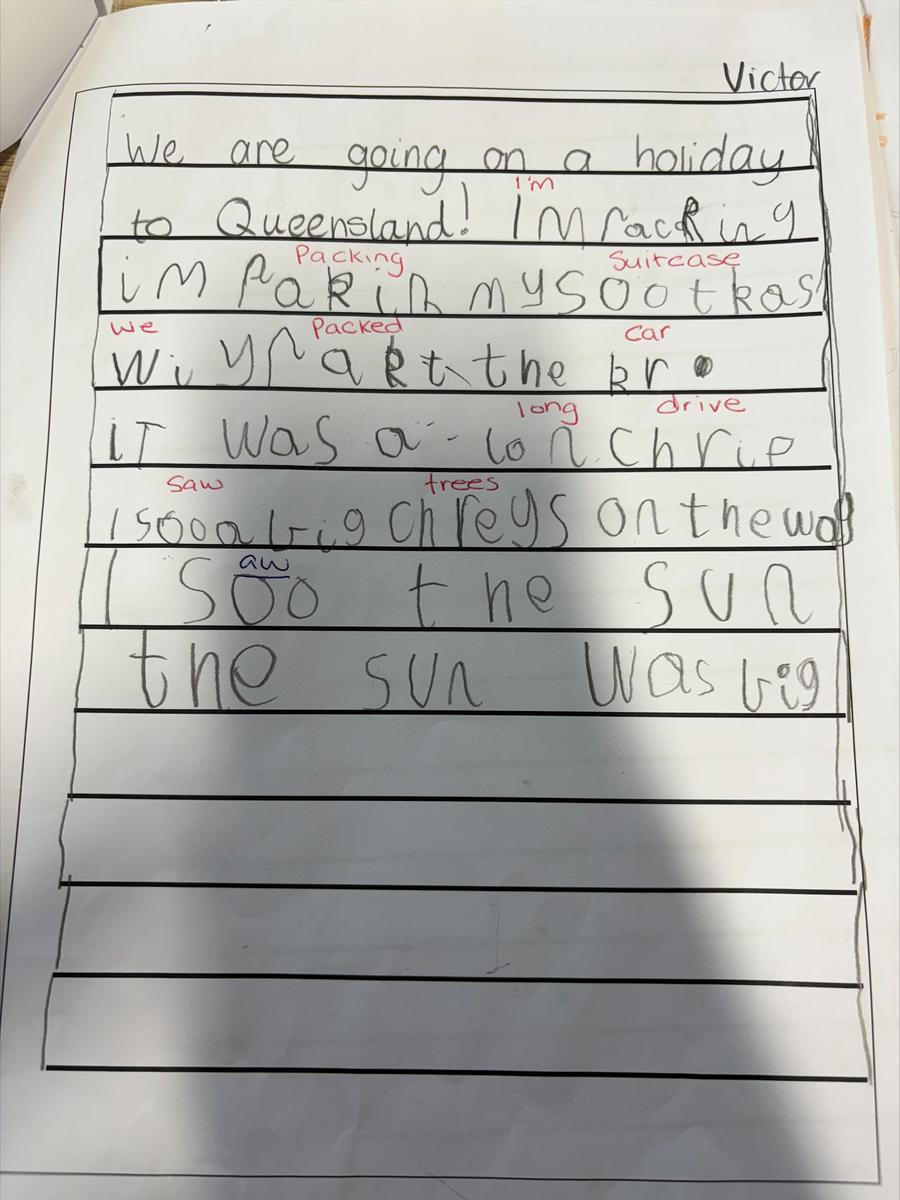 Victor
We are going on a holiday
I'm
to Queensland! Im packing
Packing Suitcase
im pakin my sootkas
we Packed car
wiy pakt the kr
long drive
iT was a lon chrip
saw trees
I soo a big chreys on the way
aw
I soo the sun
the sun was big